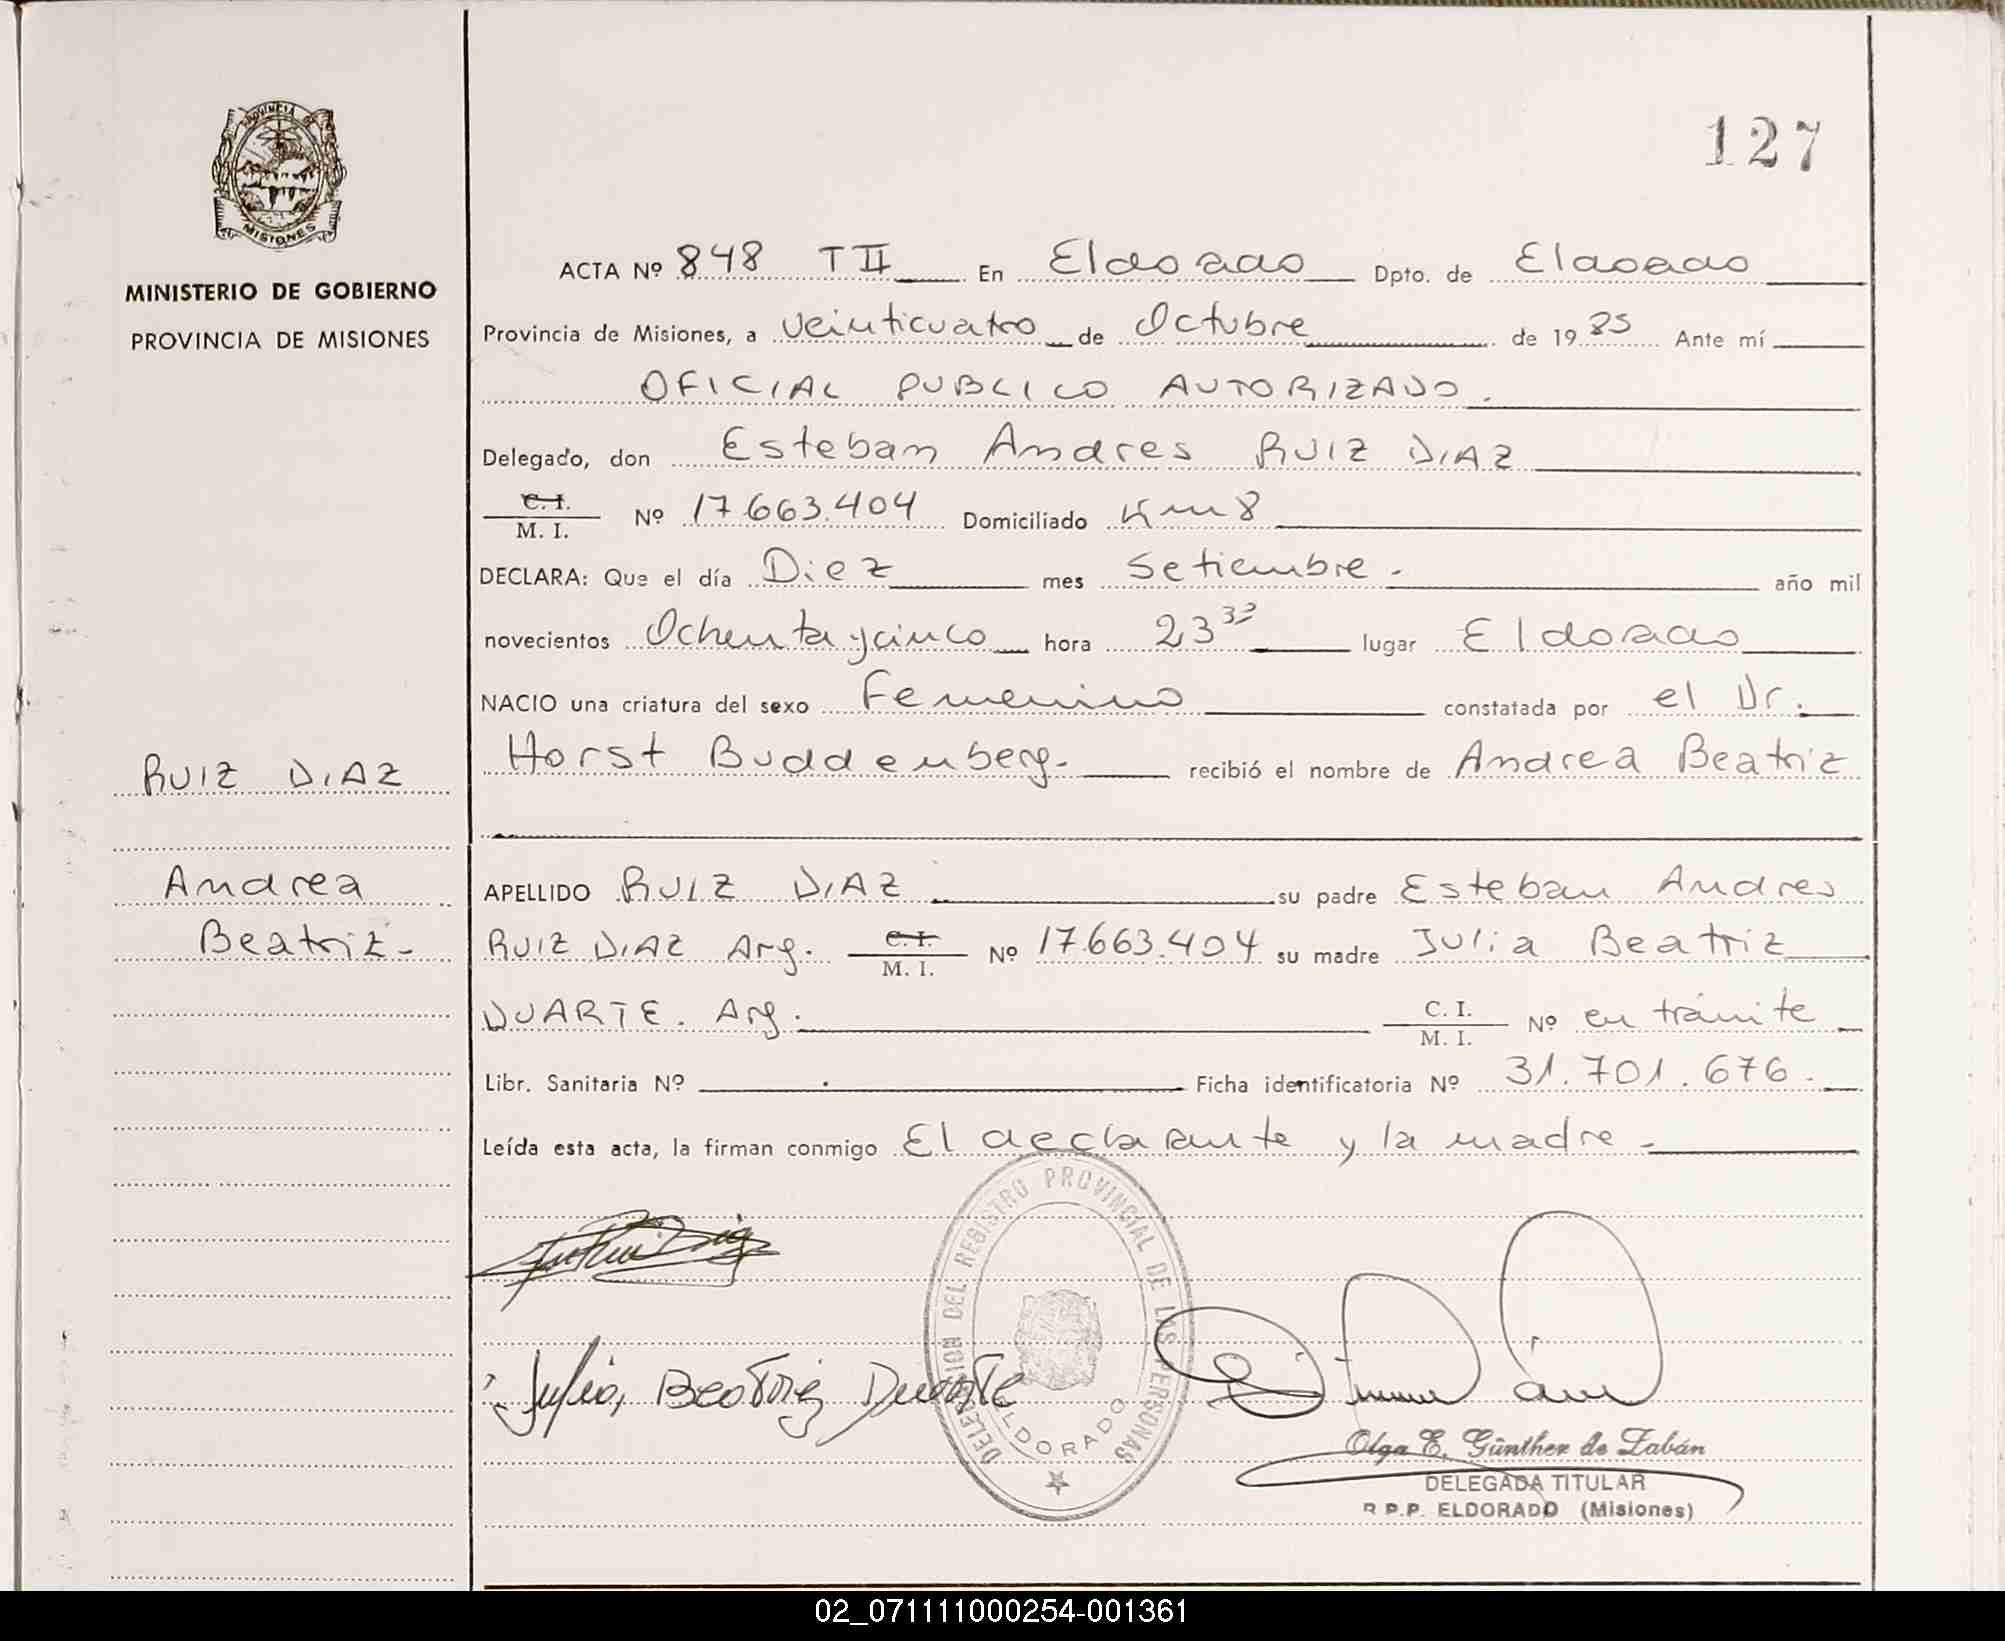 127
PROVINCIA DE
MISIONES
MINISTERIO DE GOBIERNO
PROVINCIA DE MISIONES
RUIZ DIAZ
Andrea
Beatriz -
ACTA Nº 848 T II En Eldorado Dpto. de Eldorado
Provincia de Misiones, a Veinticuatro de Octubre de 1985 Ante mí
OFICIAL PUBLICO AUTORIZADO.
Delegado, don Esteban Andres RUIZ DIAZ
C. I.
M. I. Nº 17.663.404 Domiciliado Km 8
DECLARA: Que el día Diez mes Setiembre. año mil
novecientos Ochenta y cinco hora 23 lugar Eldorado
NACIO una criatura del sexo Femenino constatada por el Dr.
Horst Buddenberg. recibió el nombre de Andrea Beatriz
APELLIDO RUIZ DIAZ su padre Esteban Andres
RUIZ DIAZ Arg. C. I. M. I. Nº 17.663.404 su madre Julia Beatriz
DUARTE. Arg. C. I. M. I. Nº en trámite
Libr. Sanitaria Nº Ficha identificatoria Nº 31.701.676.
Leída esta acta, la firman conmigo El declarante y la madre -
DELEGACION DEL REGISTRO PROVINCIAL DE LAS PERSONAS
ELDORADO
Julia, Beatriz Duarte
Olga E. Günther de Zabán
DELEGADA TITULAR
R.P.P. ELDORADO (Misiones)
02_071111000254-001361